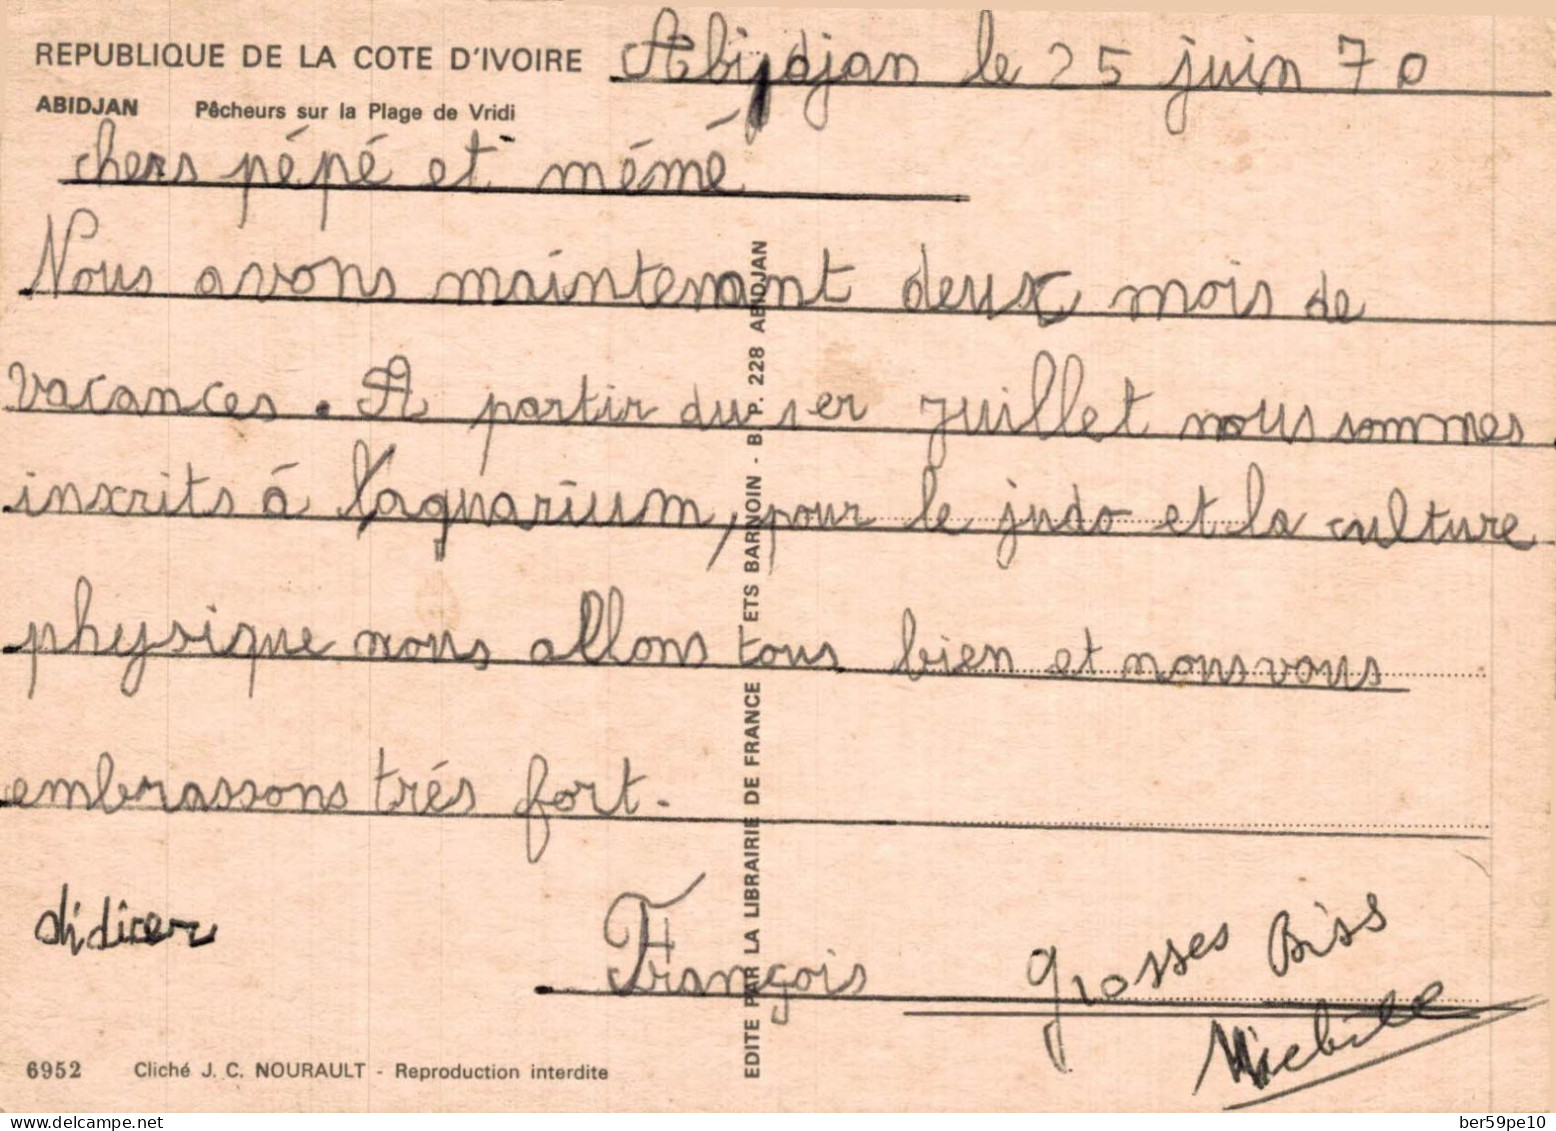 REPUBLIQUE DE LA COTE D'IVOIRE
ABIDJAN Pêcheurs sur la Plage de Vridi
Abijdjan le 25 juin 70
chers pépé et mémé
Nous avons maintenant deux mois de
vacances. A partir du 1er juillet nous sommes
inscrits á l'aquarium, pour le judo et la culture
physique nous allons tous bien et nous vous
embrassons trés fort.
didier
François
grosses Biss
EDITE PAR LA LIBRAIRIE DE FRANCE ETS BARNOIN - B. P. 228 ABIDJAN
6952 Cliché J. C. NOURAULT - Reproduction interdite
delcampe.net
ber59pe10